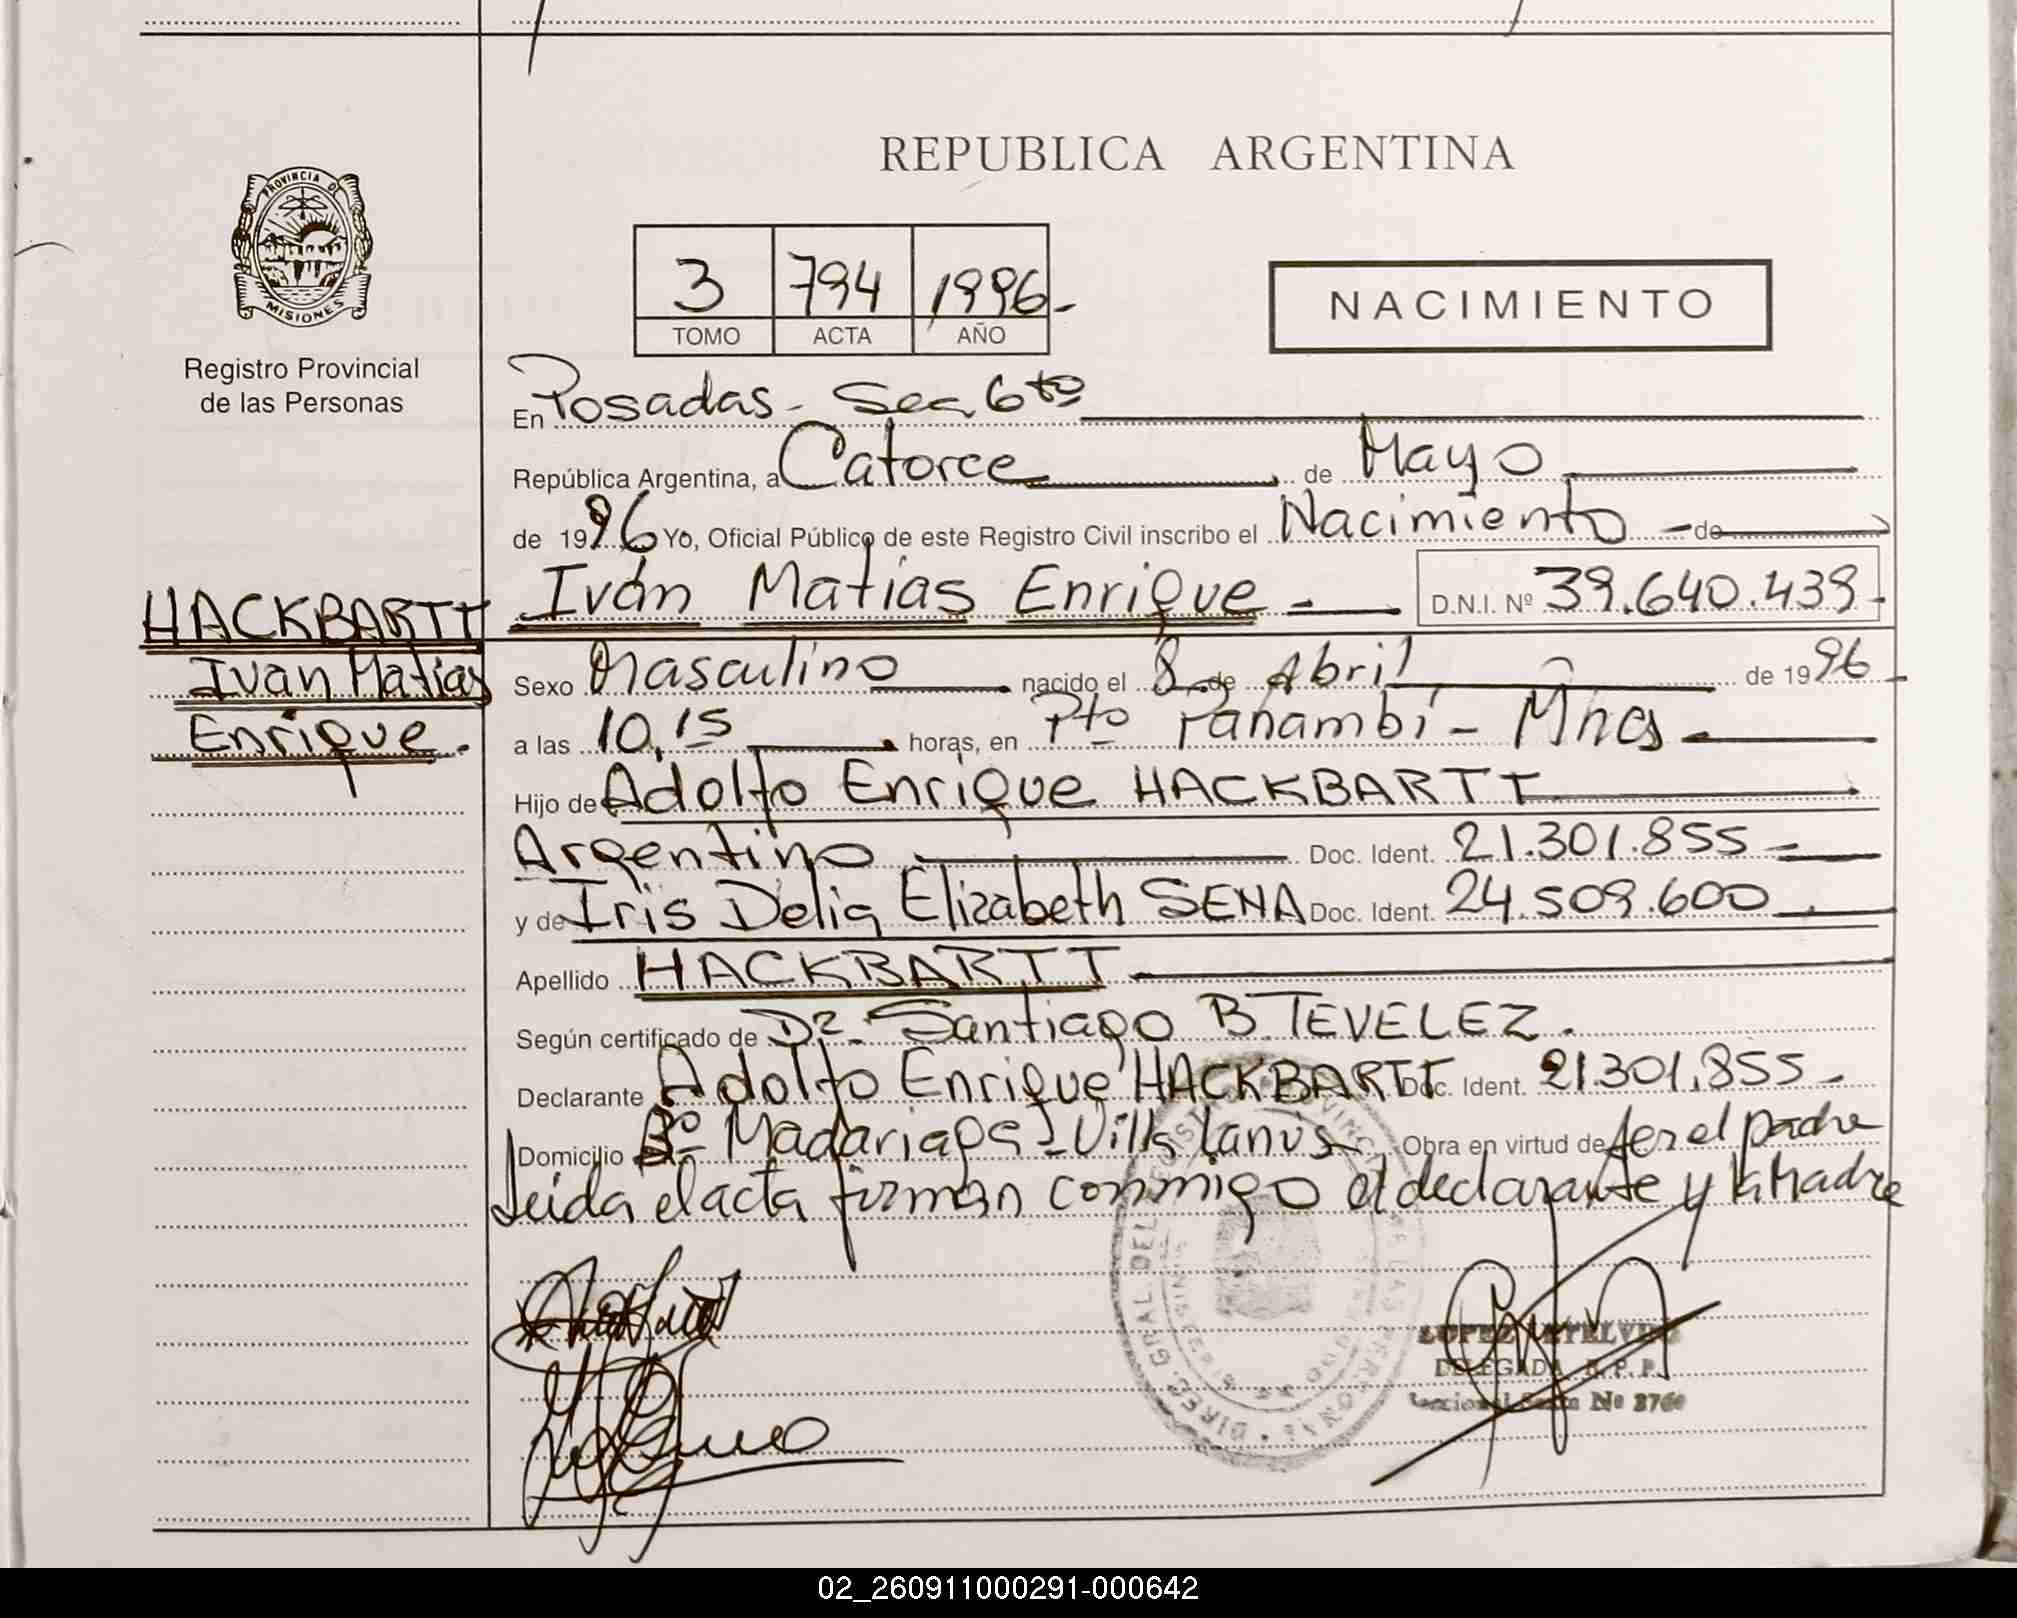 REPUBLICA ARGENTINA
PROVINCIA DE
MISIONES
Registro Provincial
de las Personas
3 794 1996-
TOMO ACTA AÑO
NACIMIENTO
En Posadas - Sec. 6ta
República Argentina, a Catorce de Mayo
de 1996 Yo, Oficial Público de este Registro Civil inscribo el Nacimiento - de
HACKBARTT
Ivan Matias
Enrique.
Iván Matías Enrique - D.N.I. Nº 39.640.439-
Sexo Masculino nacido el 8 de Abril de 1996
a las 10,15 horas, en Pto Panambí - Mnes
Hijo de Adolfo Enrique HACKBARTT
Argentino Doc. Ident. 21.301.855
y de Iris Delia Elizabeth SENA Doc. Ident. 24.509.600
Apellido HACKBARTT
Según certificado de Dr. Santiago B. TEVELEZ.
Declarante Adolfo Enrique HACKBARTT Doc. Ident. 21.301.855-
Domicilio Bº Madariaga - Villa Lanus Obra en virtud de ser el padre
Leida el acta firman conmigo el declarante y la Madre
DELEGADA R. P. P.
02_260911000291-000642